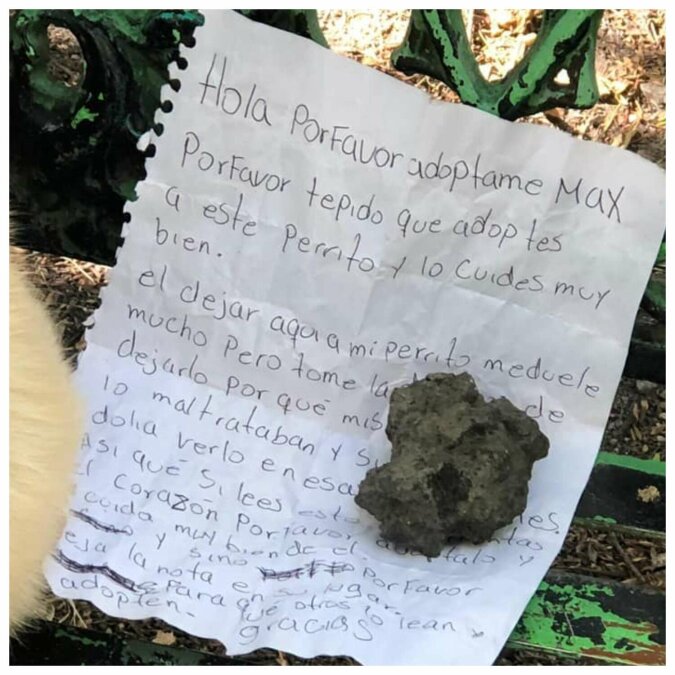 Hola PorFavor adoptame Max
PorFavor tepido que adoptes
a este perrito y lo cuides muy
bien.
el dejar aqui a mi perrito me duele
mucho pero tome la de
dejarlo por qué mis
lo maltrataban y
dolia verlo en esa nes.
Asi qué si lees esto
el corazón porfavor y
cuida muy bien de el
y sino porFavor
eja la nota en su lugar
para qué otros lo lean y
adopten.
gracias